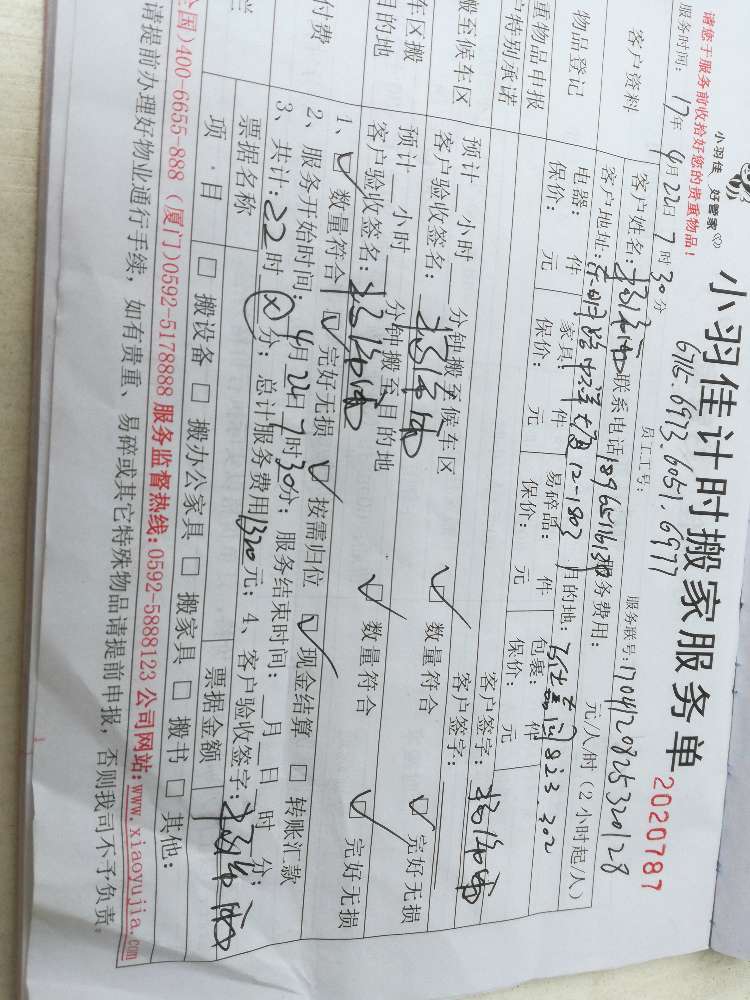 小羽佳 好管家
小羽佳计时搬家服务单
2020787
请您于服务前收拾好您的贵重物品!
6715.6973.6051.6977
服务时间: 17年 4月22日7时30分
员工工号:
服务联号: 170420825320128
客户资料
客户姓名:
联系电话
服务费用: 元/人/时(2小时起/人)
客户地址:
12-1803
目的地:
823.302
物品登记
电器: 件
家具: 件
易碎品: 件
包裹: 件
保价: 元
保价: 元
保价: 元
保价: 元
重物品申报
户特别承诺
客户签字:
搬至候车区
预计__小时__分钟搬至候车区
客户签字:
客户验收签名:
数量符合
完好无损
车区搬
目的地
预计__小时__分钟搬至目的地
客户验收签名:
数量符合
完好无损
付费
1、 数量符合 完好无损 按需归位 现金结算 转账汇款
2、服务开始时间: 4月22日7时30分; 服务结束时间: __月__日 时 分;
3、共计: 22时 分; 总计服务费用1320元; 4、客户验收签字:
票据名称
票据金额
项 目
搬设备 搬办公家具 搬家具 搬书 其他:
全国)400-6655-888 (厦门)0592-5178888 服务监督热线:0592-5888123 公司网站:www.xiaoyujia.com
请提前办理好物业通行手续, 如有贵重、易碎或其它特殊物品请提前申报, 否则我司不予负责。